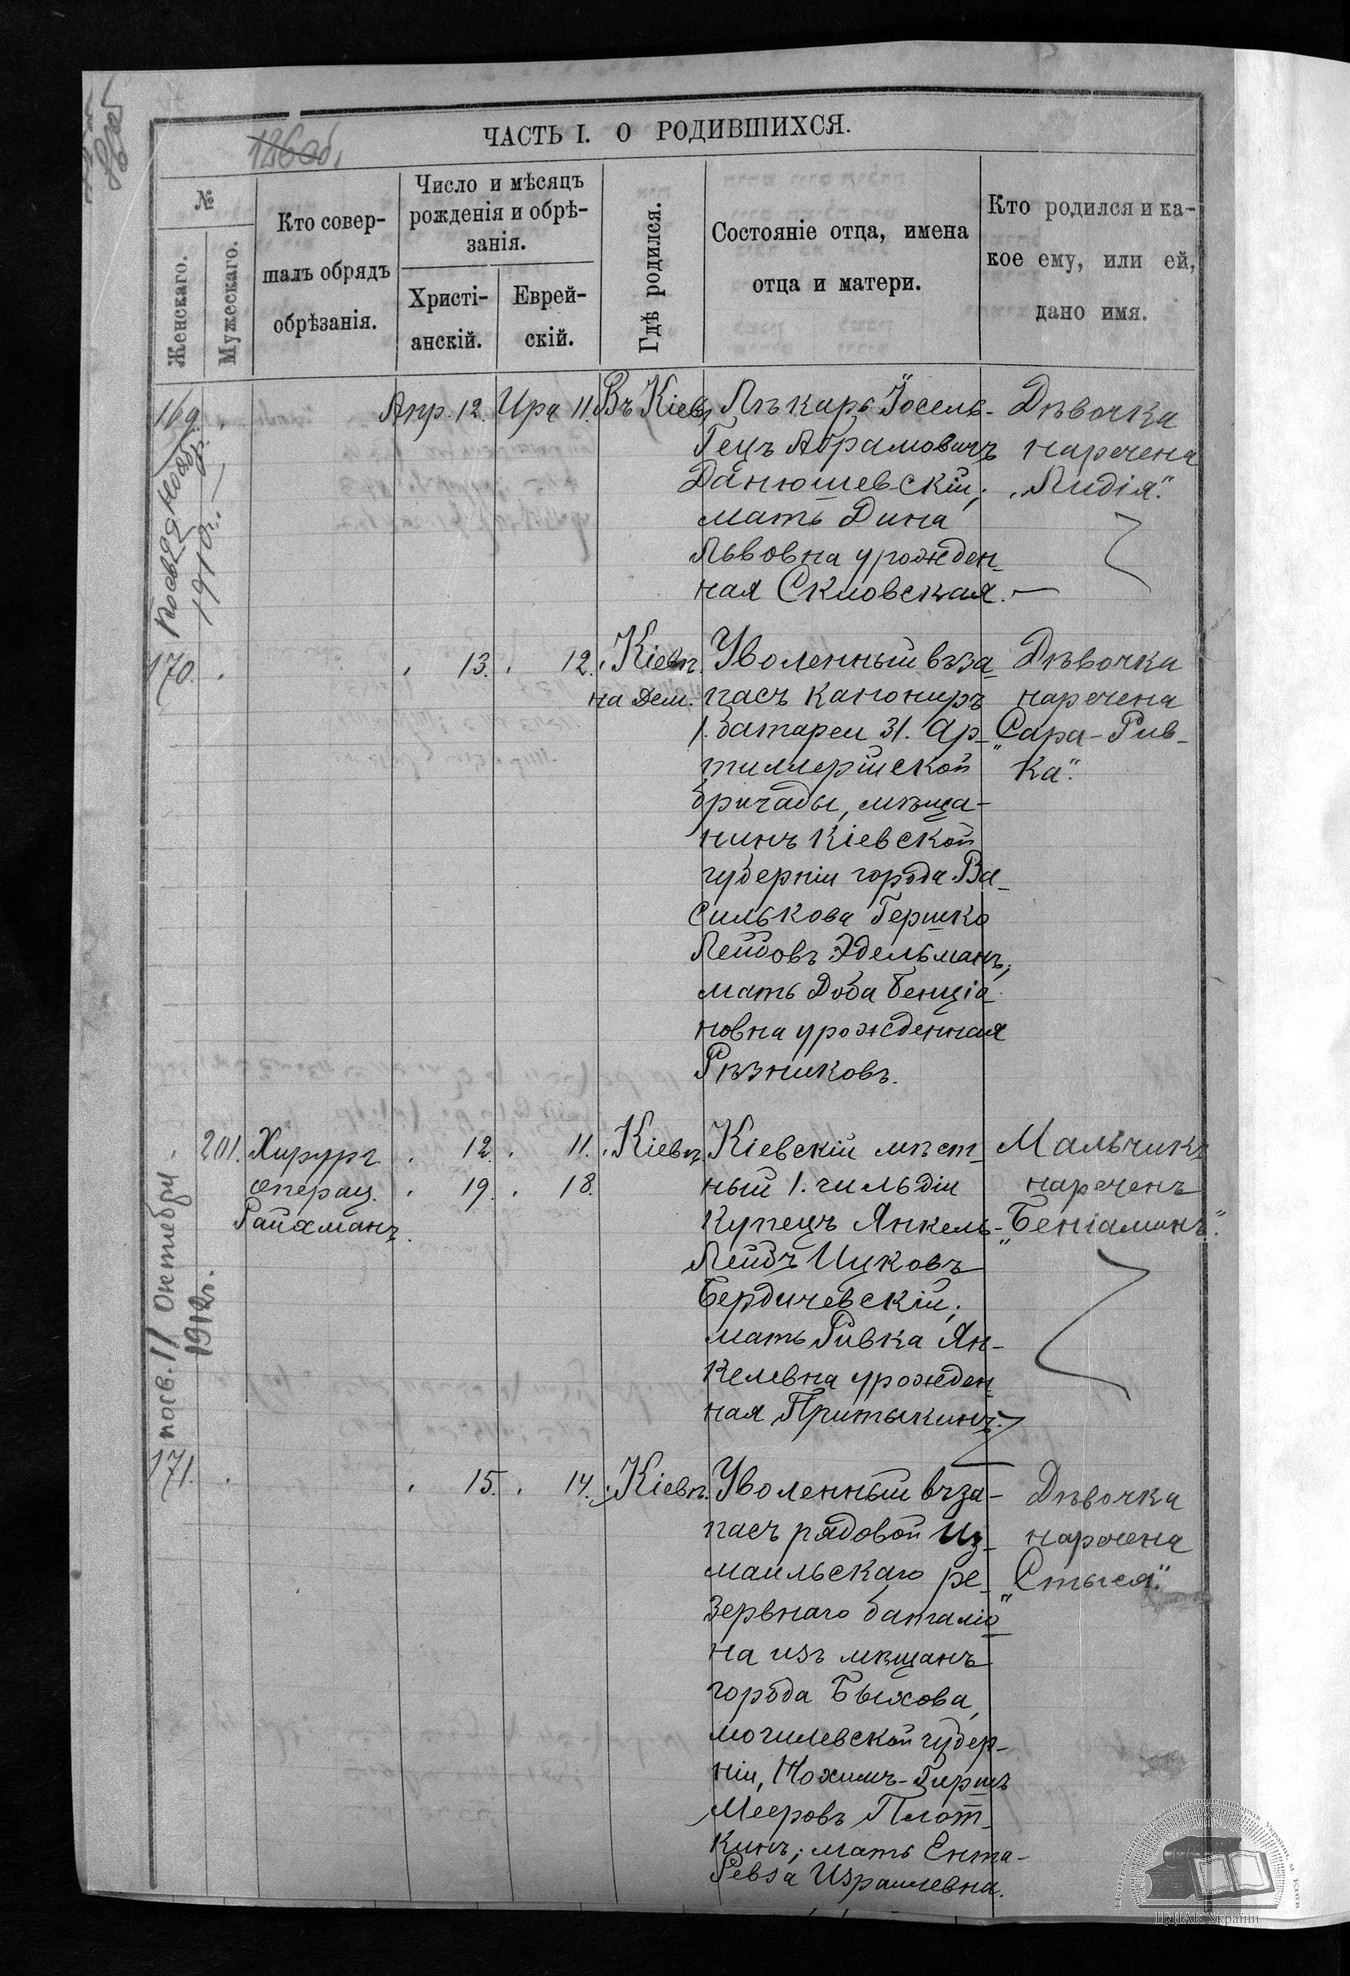 126 об.
ЧАСТЬ I. О РОДИВШИХСЯ.
№
Женскаго.
Мужескаго.
Кто совер-
шалъ обрядъ
обрѣзанія.
Число и мѣсяцъ
рожденія и обрѣ-
занія.
Христі-
анскій.
Еврей-
скій.
Гдѣ родился.
Состояніе отца, имена
отца и матери.
Кто родился и ка-
кое ему, или ей,
дано имя.
169.
Апр. 12. Ира 11. Въ Кіевѣ
Лѣкарь Іосель-
Гецъ Абрамовичъ
Данюшевскій;
мать Дина
Львовна урожден-
ная Скловская.
Дѣвочка
наречена
„Лидія".
1910г.
170.
13. 12. Кіевѣ
на Дем.
Уволенный въ за-
пасъ канониръ
1. батареи 31. Ар-
тиллерійской
бригады, мѣща-
нинъ Кіевской
губерніи города Ва-
силькова Гершко
Лейбовъ Эдельманъ;
мать Доба Бенціа-
новна урожденная
Рѣзниковъ.
Дѣвочка
наречена
„Сара-Рив-
ка".
201.
Хирургъ
операц.
Райхманъ.
12. 11. Кіевѣ
19. 18.
Кіевскій мѣст-
ный 1. гильдіи
Купецъ Янкель-
Лейбъ Ицковъ
Бердичевскій;
мать Ривка Ян-
келевна урожден-
ная Притыкинъ.
Мальчикъ
нареченъ
„Беніаминъ".
посв. 11 Октября
1912г.
171.
15. 14. Кіевѣ
Уволенный въ за-
пасъ рядовой Из-
маильскаго ре-
зервнаго баталіо-
на изъ мѣщанъ
города Быхова,
могилевской губер-
ніи, Нохимъ-Гиршъ
Мееровъ Плот-
кинъ; мать Ента-
Ревза Израилевна.
Дѣвочка
наречена
„Стыся".
ЦДІАК України